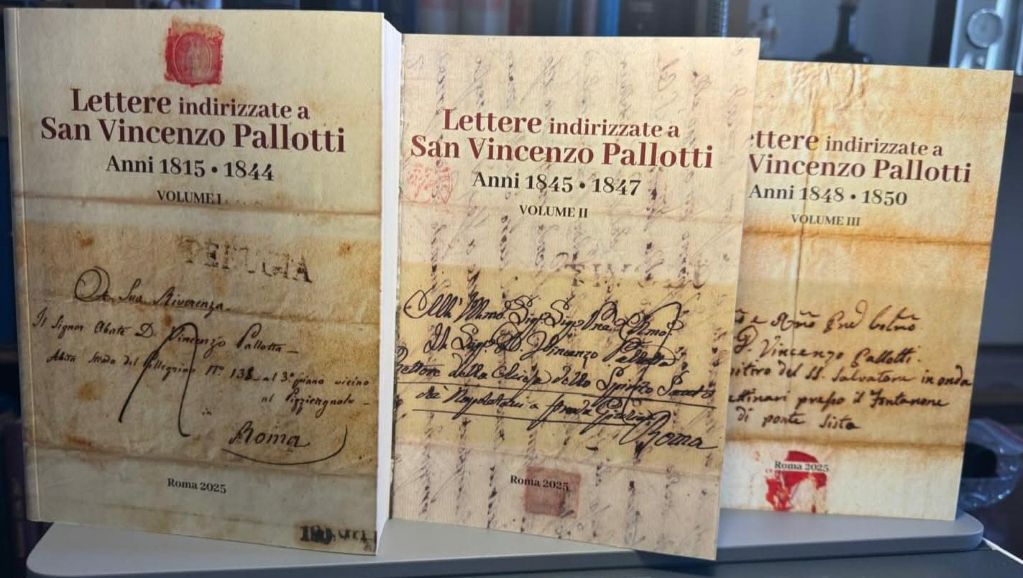 Lettere indirizzate a
San Vincenzo Pallotti
Anni 1815 • 1844
VOLUME I
De Sua Riverenza
Il Signor Abate D. Vincenzo Pallotta
Abita Strada del Pellegrino N° 138 al 3° piano vicino
al Pizzicagnolo
Roma
Roma 2025
Lettere indirizzate a
San Vincenzo Pallotti
Anni 1845 • 1847
VOLUME II
D Vincenzo
Rettore della Chiesa dello Spirito Santo
dei Napoletani a strada Giulia
Roma
Roma 2025
ettere indirizzate a
Vincenzo Pallotti
Anni 1848 • 1850
VOLUME III
D. Vincenzo Pallotti
del SS. Salvatore in onda
presso il Fontanone
di ponte Sisto
Roma 2025